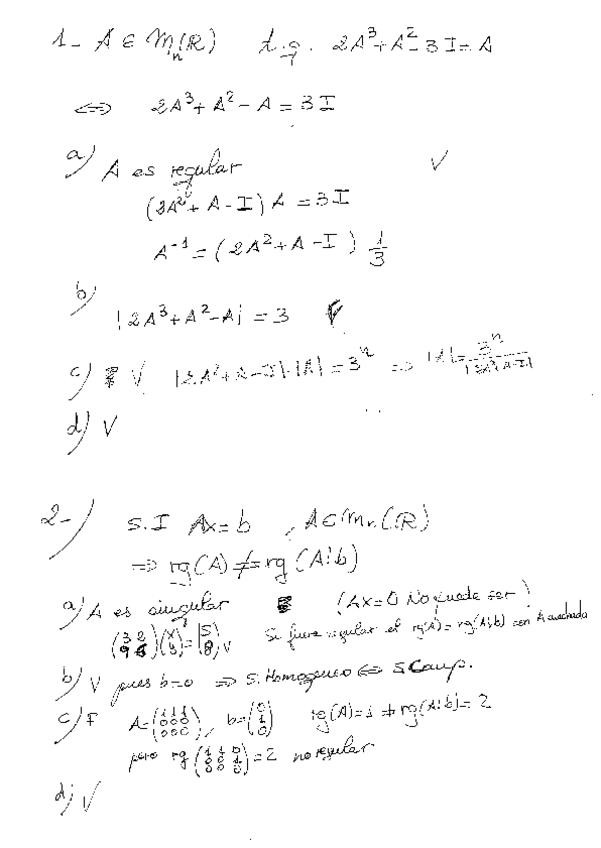 1- A ∈ M_n(R) t.q. 2A³+A²-3I=A
⟺ 2A³+A²-A=3I
a) A es regular V
(2A²+A-I)A=3I
A⁻¹=(2A²+A-I) 1/3
b) |2A³+A²-A|=3 F
c) V |2A²+A-I|·|A|=3ⁿ ⇒ |A|=3ⁿ/|2A²+A-I|
d) V
2-) S.I Ax=b , A∈M_n(R)
⇒ rg(A)≠rg(A¦b)
a) A es singular (Ax=0 No puede ser)
(3 2 / 9 6)(x / y)=(5 / 8) V Si fuera regular el rg(A)=rg(A¦b) con A cuadrada
b) V pues b=0 ⇒ S. Homogeneo ⟺ S. Comp.
c) F A=(1 1 1 / 0 0 0 / 0 0 0), b=(0 / 1 / 0) rg(A)=1≠rg(A¦b)=2
pero rg(1 1 0 / 0 0 1 / 0 0 0)=2 no regular
d) V